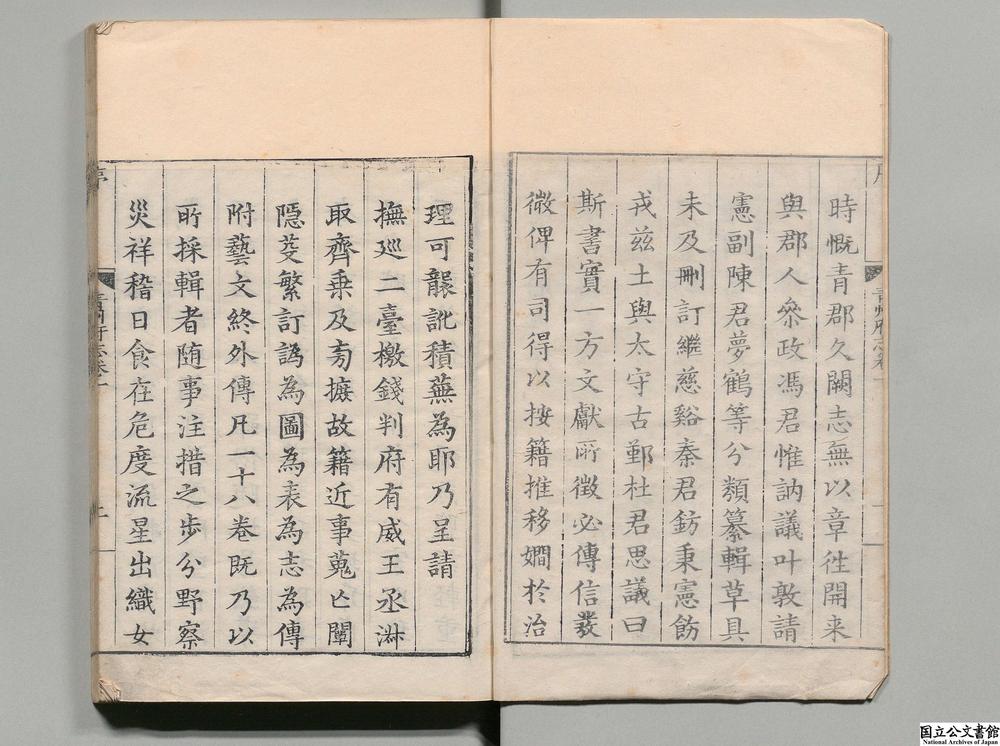 時慨青郡久闕志無以章徃開来
與郡人叅政馮君惟訥議叶敦請
憲副陳君夢鶴等分類纂輯草具
未及刪訂繼慈谿秦君鈁秉憲飭
戎兹土與太守古鄞杜君思議曰
斯書實一方文獻所徵必傳信𤼵
微俾有司得以按籍推移嫺於治
理可襲訛積蕪為耶乃呈請
撫廵二臺檄錢判府有威王丞淋
取齊乗及旁摭故籍近事蒐亡闡
隱芟繁訂譌為圖為表為志為傳
附藝文終外傳凡一十八卷既乃以
所採輯者随事注措之步分野察
災祥稽日食在危度流星出織女
序
青州府志卷一
国立公文書館
National Archives of Japan